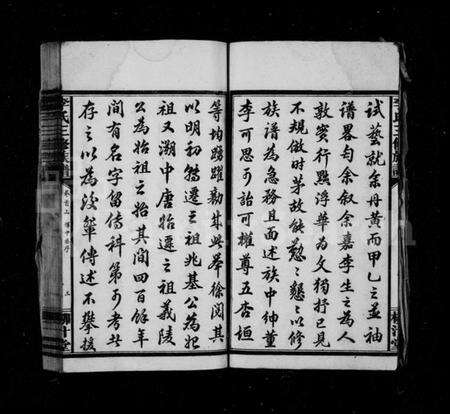 試藝就余丹黄而甲乙之並袖
譜畧匄余叙余嘉李生之為人
敦實行黜浮華為文獨抒己見
不規倣時茅故能懃懃懇懇以修
族譜為急務且面述族中紳董
李可思可詒可權尊五杏垣
等均踴躍勸成此舉徐閱其
以明初始遷之祖兆基公為始
祖又溯中唐始遷之祖義陵
公為始祖之始其間四百餘年
間有名字留傳科第可考悉
存之以為後輩傳述不攀援
李氏三修族譜